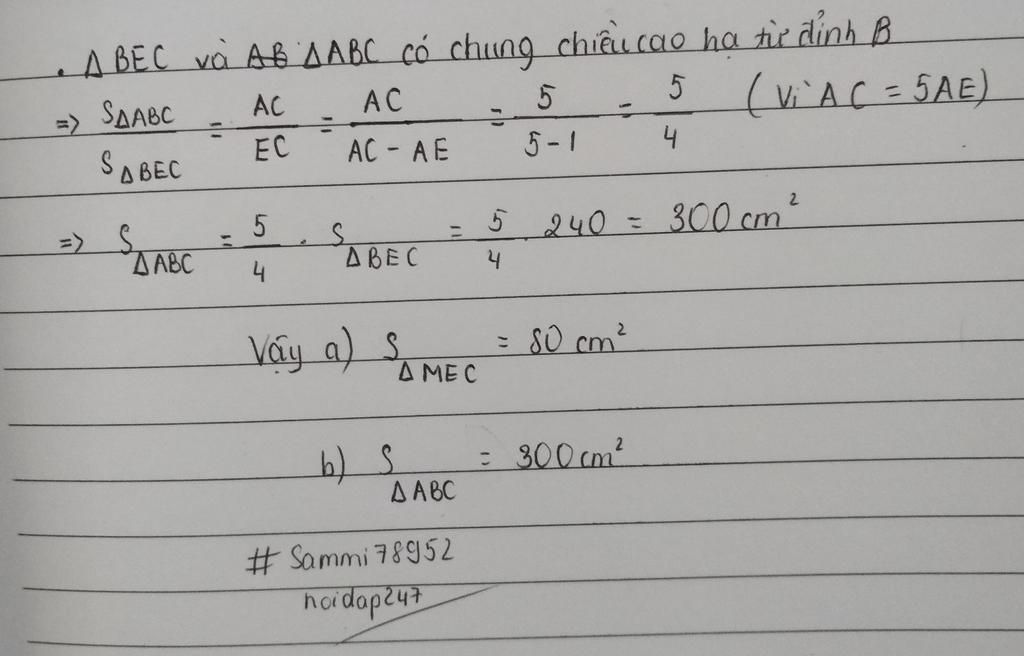 . Δ BEC và AB ΔABC có chung chiều cao hạ từ đỉnh B
=> SΔABC / SΔBEC = AC / EC = AC / AC - AE = 5 / 5-1 = 5 / 4 (Vì AC = 5AE)
=> SΔABC = 5/4 . SΔBEC = 5/4 . 240 = 300 cm²
Vậy a) SΔMEC = 80 cm²
b) SΔABC = 300 cm²
# Sammi78952
hoidap247